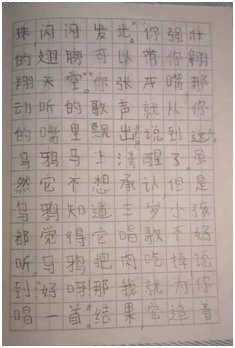 珠闪闪发光。”“你强壮
的翅膀可以带你翱
翔天空。”“你张开嘴那
动听的歌声就从你
的嘴里飘出。”说到这，
乌鸦马上清醒了。虽
然它不想承认但是
乌鸦知道三岁小孩
都觉得它唱歌不好
听。乌鸦把肉吃掉说
到“好呀那我就为你
唱一首。”结果，它边看